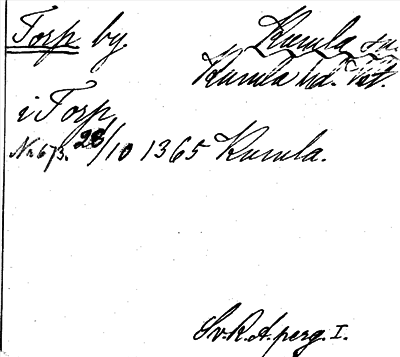 Torp by. Kumla sn.
Kumla hd.
i Torp
No 673. 28/10 1365 Kumla.
Sv.R.A. perg. I.